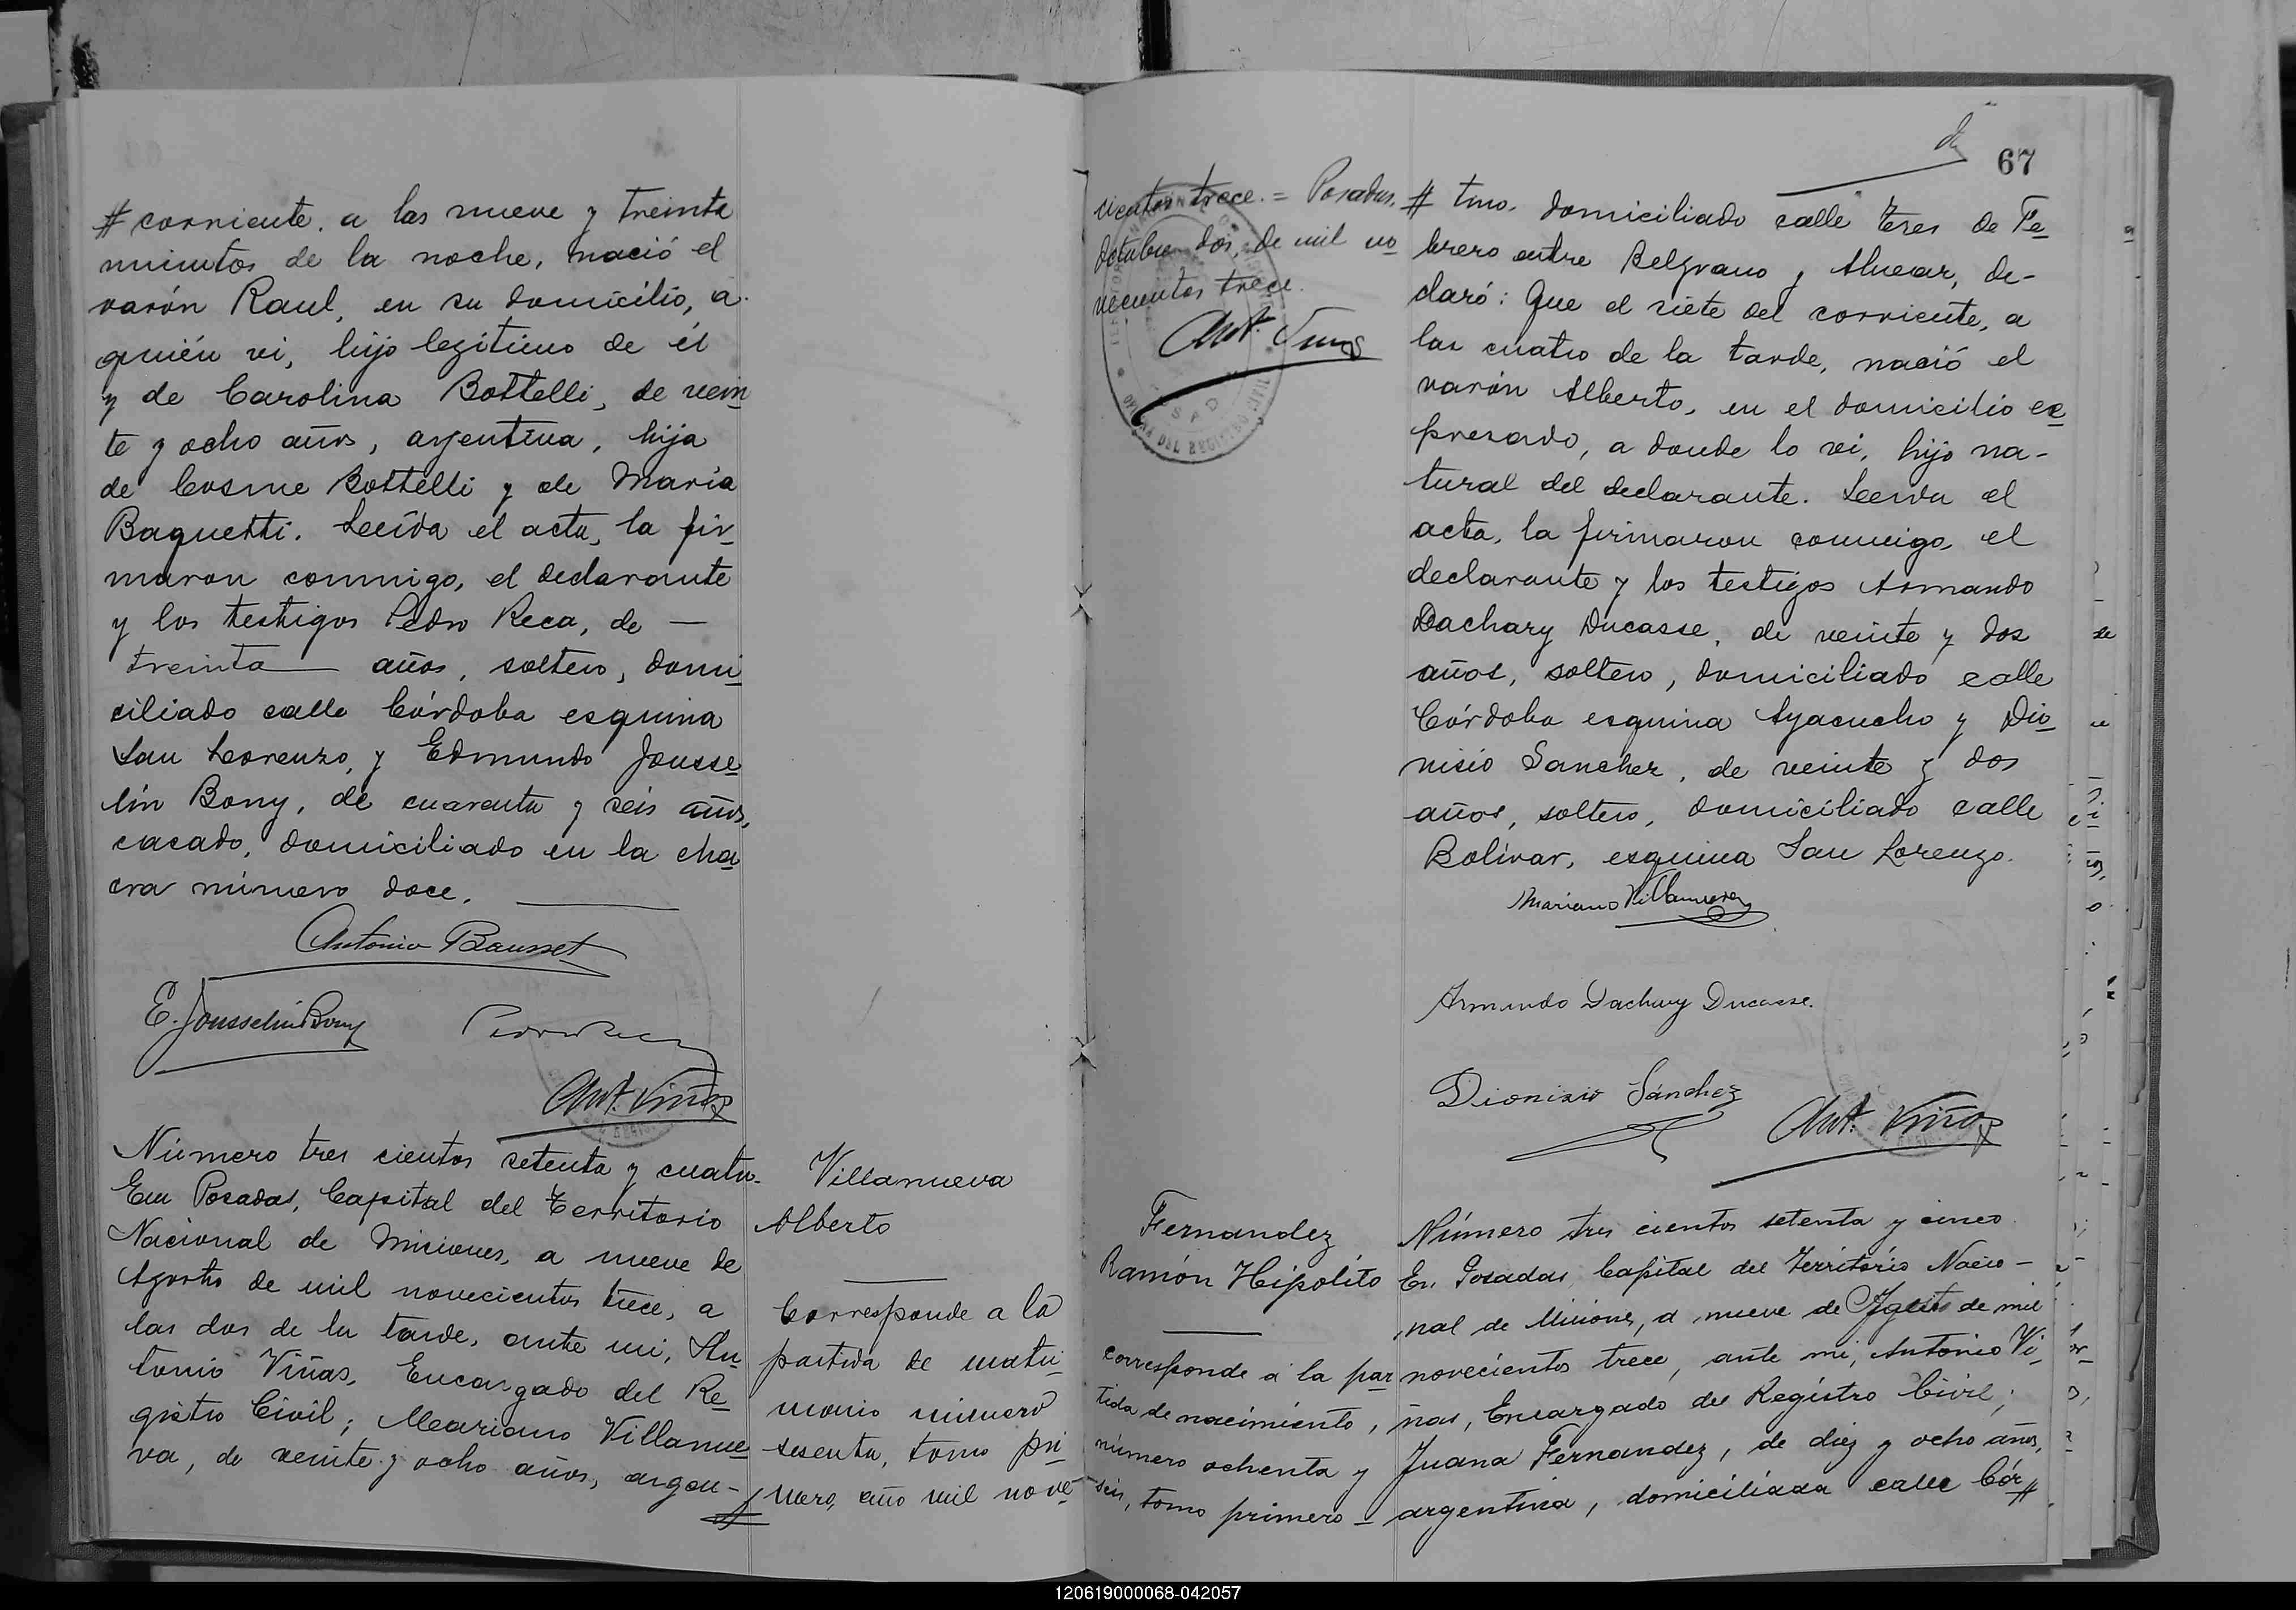 # corriente. a las nueve y treinta
minutos de la noche, nació el
varón Raul, en su domicilio, a
quién vi, hijo legitimo de él
y de Carolina Bottelli, de vein
te y ocho años, argentina, hija
de Cosme Bottelli y de Maria
Baquetti. Leeida el acta, la fir
maron conmigo, el declarante
y los testigos Pedro Reca, de —
treinta — años, soltero, domi
ciliado calle Córdoba esquina
San Lorenzo, y Edmundo Jousse
lin Bony, de cuarenta y seis años,
casado, domiciliado en la cha
cra número doce.
Antonio Bausset
E. Jousselin Bony
Pedro Reca
Ant. Viñas
Número tres cientos setenta y cuatro.
En Posadas, Capital del Territorio
Nacional de Misiones, a nueve de
Agosto de mil novecientos trece, a
las dos de la tarde, ante mi, An
tonio Viñas, Encargado del Re
gistro Civil; Mariano Villanue
va, de veinte y ocho años, argen-
Villanueva
Alberto
Corresponde a la
partida de matri
monio número
sesenta, tomo pri
mero, año mil nove
67
cientos trece. = Posadas,
Octubre dos, de mil no
vecientos trece.
Ant. Viñas
# tino. domiciliado calle tres de Fe
brero entre Belgrano y Alvear, de-
claró: Que el siete del corriente, a
las cuatro de la tarde, nació el
varón Alberto, en el domicilio ex
presado, a donde lo vi, hijo na-
tural del declarante. Leeida el
acta, la firmaron conmigo, el
declarante y los testigos Armando
Dachary Ducasse, de veinte y dos
años, soltero, domiciliado calle
Córdoba esquina Ayacucho y Dio
nisio Sanchez, de veinte y dos
años, soltero, domiciliado calle
Bolívar, esquina San Lorenzo.
Mariano Villanueva
Armando Dachary Ducasse.
Dionisio Sánchez
Ant. Viñas
Fernandez
Ramón Hipolito
corresponde a la par
tida de nacimiento,
número ochenta y
seis, tomo primero
Número tres cientos setenta y cinco
En Posadas Capital del Territorio Nacio-
nal de Misiones, a nueve de Agosto de mil
novecientos trece, ante mi, Antonio Vi
ñas, Encargado del Registro Civil;
Juana Fernandez, de diez y ocho años,
argentina, domiciliada calle Cór#
120619000068-042057